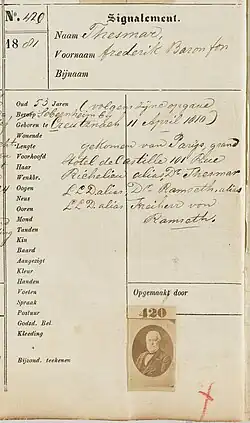 No. 420
Signalement.
1881
Naam Thesmar,
Voornaam Frederik Baron fon
Bijnaam
Oud 53 Jaren (volgens zijne opgave
Beroep
Geboren te Creutznach 11 April 1818)
Wonende
Lengte gekomen van Parijs, grand
Voorhoofd Hotel de Castille 101 Rue
Haar Richelieu alias, Dr. Thesmar
Wenkbr.
Oogen L.L.D alias Dr. Ramseth, alias
Neus
Ooren L.L.D alias Freiherr von
Mond Ramseth.
Tanden
Kin
Baard
Aangezigt
Kleur
Handen
Voeten
Spraak
Postuur
Godsd. Bel.
Kleeding
Bijzond. teekenen
Opgemaakt door
420